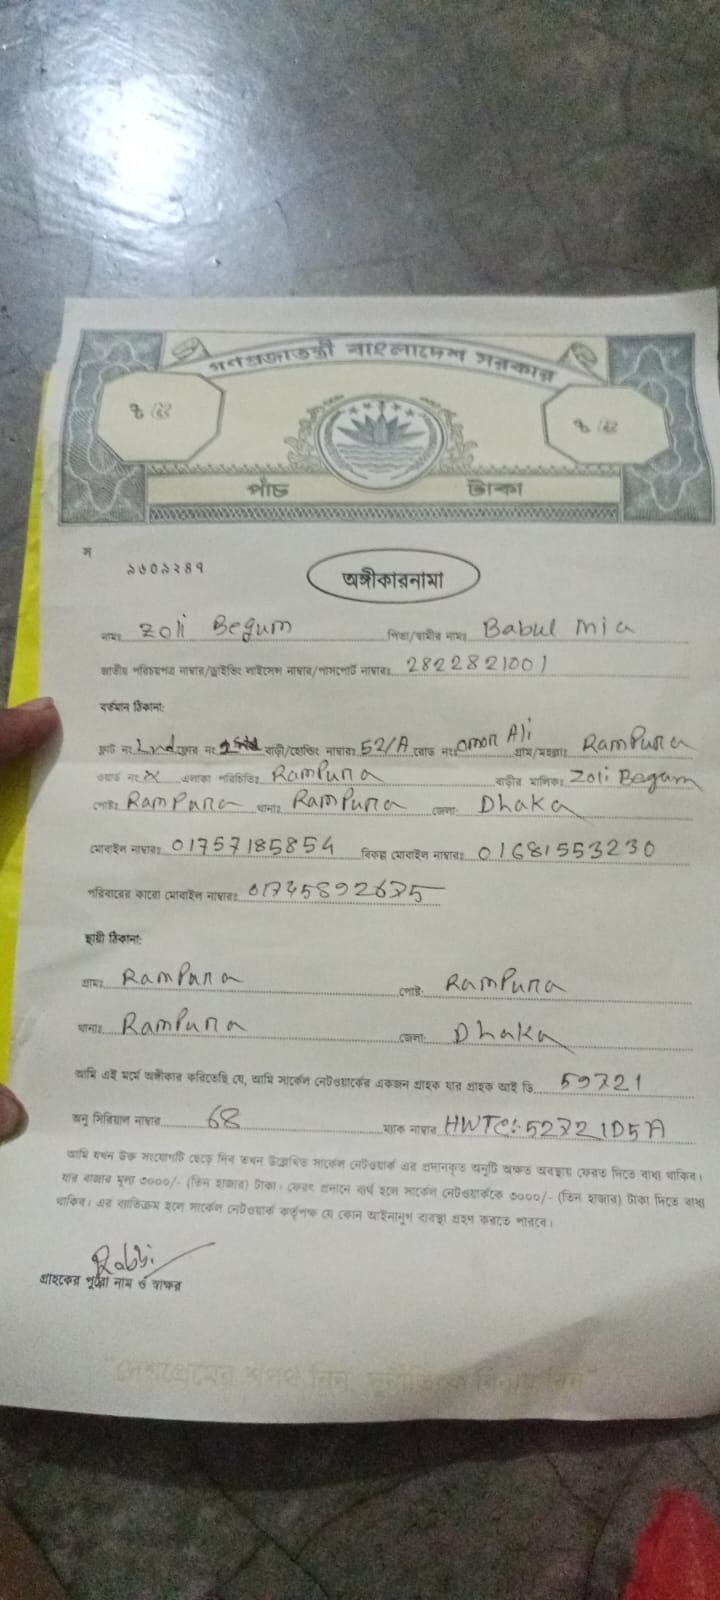 গণপ্রজাতন্ত্রী বাংলাদেশ সরকার
পাঁচ টাকা
অঙ্গীকারনামা
নামঃ Zoli Begum পিতা/স্বামীর নামঃ Babul mia
জাতীয় পরিচয়পত্র নাম্বার/ড্রাইভিং লাইসেন্স নাম্বার/পাসপোর্ট নাম্বারঃ 2822821001
বর্তমান ঠিকানা:
ফ্লাট নং ফ্লোর নং বাড়ী/হোল্ডিং নাম্বারঃ 52/A রোড নং omor Ali গ্রাম/মহল্লাঃ RamPura
ওয়ার্ড নং x এলাকা পরিচিতিঃ RamPura বাড়ীর মালিকঃ Zoli Begam
পোষ্টঃ RamPura থানাঃ RamPura জেলাঃ Dhaka
মোবাইল নাম্বারঃ 01757185854 বিকল্প মোবাইল নাম্বারঃ 01681553230
পরিবারের কারো মোবাইল নাম্বারঃ
স্থায়ী ঠিকানা:
গ্রামঃ RamPura পোষ্ট: RamPura
থানাঃ RamPura জেলা: Dhaka
আমি এই মর্মে অঙ্গীকার করিতেছি যে, আমি সার্কেল নেটওয়ার্কের একজন গ্রাহক যার গ্রাহক আই ডি
অনু সিরিয়াল নাম্বার 68 ম্যাক নাম্বার
আমি যখন উক্ত সংযোগটি ছেড়ে দিব তখন উল্লেখিত সার্কেল নেটওয়ার্ক এর প্রদানকৃত অনুটি অক্ষত অবস্থায় ফেরত দিতে বাধ্য থাকিব।
যার বাজার মূল্য ৩০০০/- (তিন হাজার) টাকা। ফেরৎ প্রদানে ব্যর্থ হলে সার্কেল নেটওয়ার্ককে ৩০০০/- (তিন হাজার) টাকা দিতে বাধ্য
থাকিব। এর ব্যতিক্রম হলে সার্কেল নেটওয়ার্ক কর্তৃপক্ষ যে কোন আইনানুগ ব্যবস্থা গ্রহণ করতে পারবে।
Rabbi
গ্রাহকের পুরো নাম ও স্বাক্ষর
"দেশপ্রেমের শপথ নিন, দুর্নীতিকে বিদায় দিন"